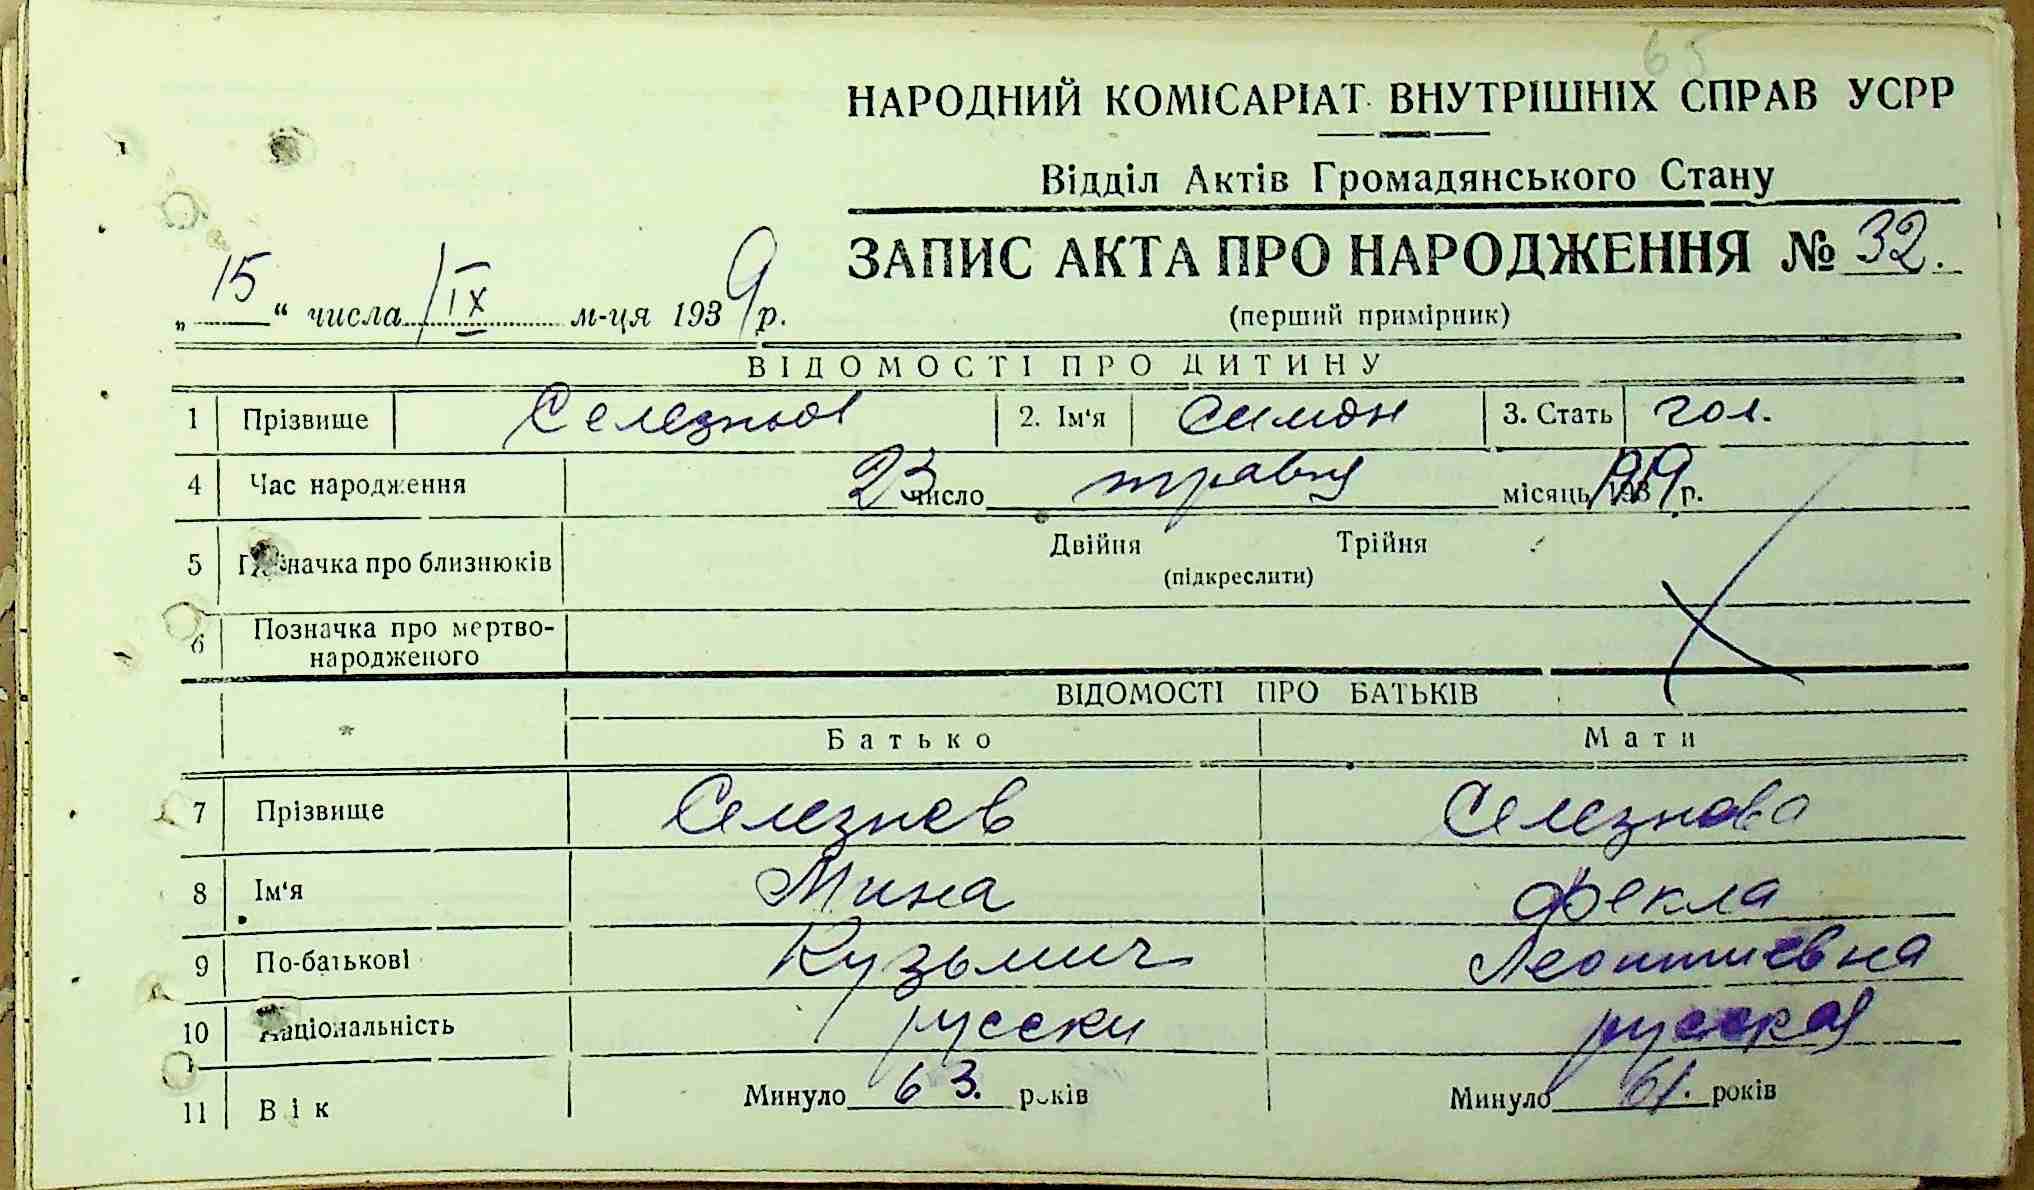 65
НАРОДНИЙ КОМІСАРІАТ ВНУТРІШНІХ СПРАВ УСРР
Відділ Актів Громадянського Стану
ЗАПИС АКТА ПРО НАРОДЖЕННЯ № 32.
„15“ числа IX м-ця 1939 р.
(перший примірник)
ВІДОМОСТІ ПРО ДИТИНУ
1 Прізвище Селезньов 2. Ім'я Симон 3. Стать чол.
4 Час народження 23 число травня місяць р.
5 Позначка про близнюків Двійня Трійня
(підкреслити)
6 Позначка про мертво-
народженого
ВІДОМОСТІ ПРО БАТЬКІВ
Батько Мати
7 Прізвище Селезнев Селезнова
8 Ім'я Мина Фекла
9 По-батькові Кузьмич Леонтиевна
10 Національність русски русская
11 Вік Минуло 63. років Минуло 61. років